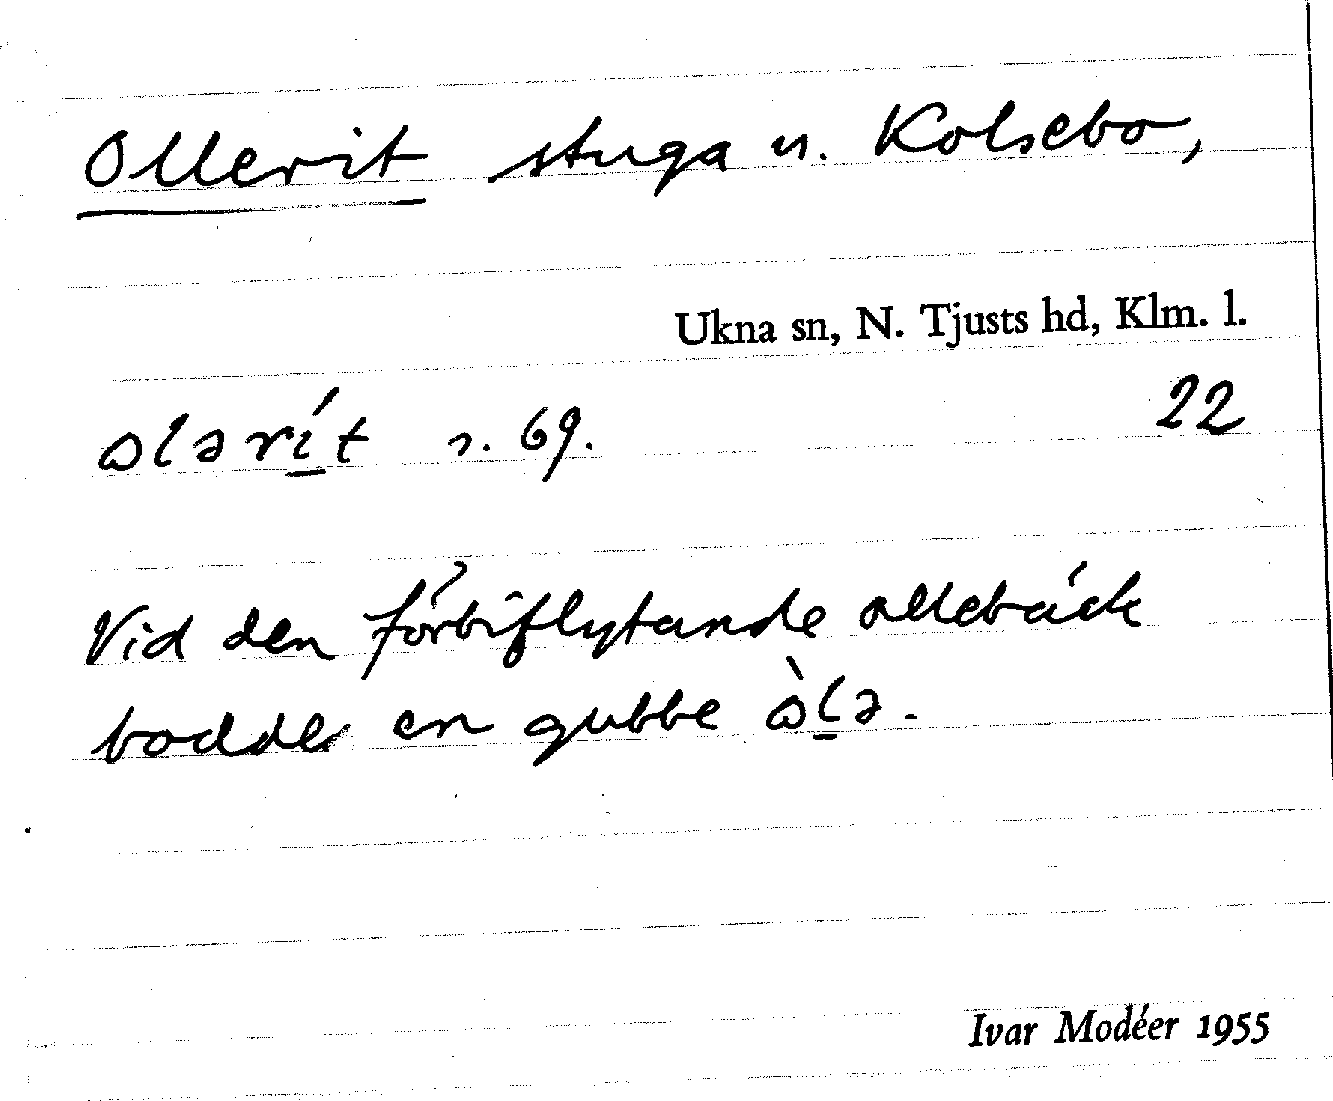 Ollerit stuga u. Kolsebo,
Ukna sn, N. Tjusts hd, Klm. l.
ɷlərí̲t r. 69. 22
Vid den förbiflytande ollebäck
bodde en gubbe ɷ̀l̲ə.
Ivar Modéer 1955